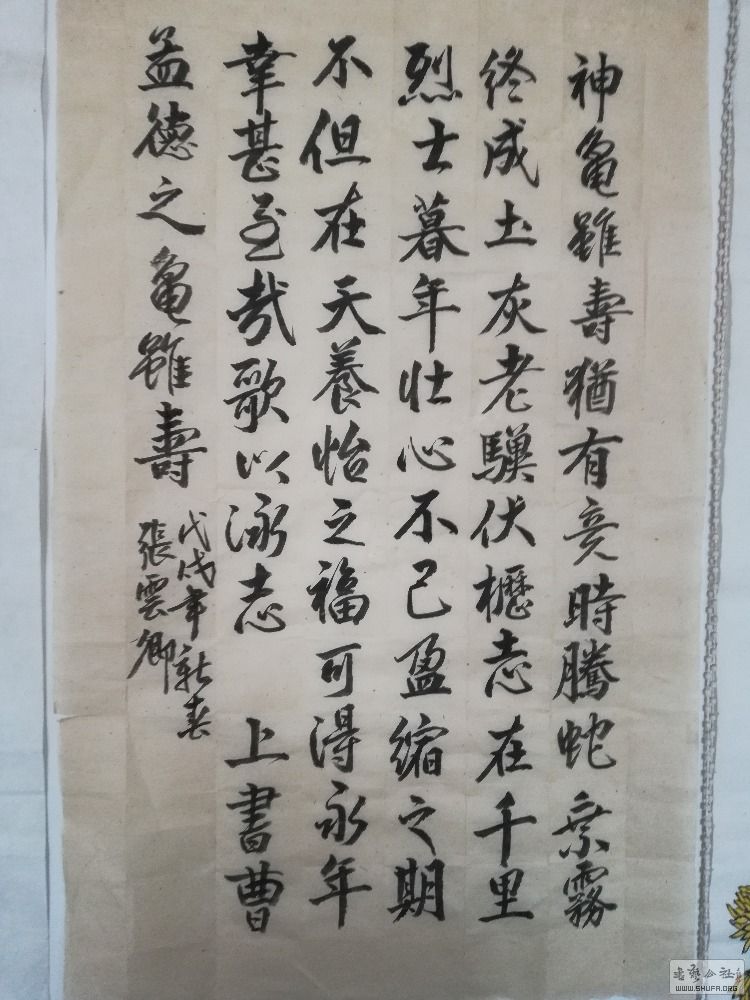 神龜雖壽猶有竟時騰蛇乘霧
終成土灰老驥伏櫪志在千里
烈士暮年壯心不已盈縮之期
不但在天養怡之福可得永年
幸甚至哉歌以詠志 上書曹
孟德之龜雖壽
戊戌年新春
張雲卿
书艺公社
WWW.SHUFA.ORG